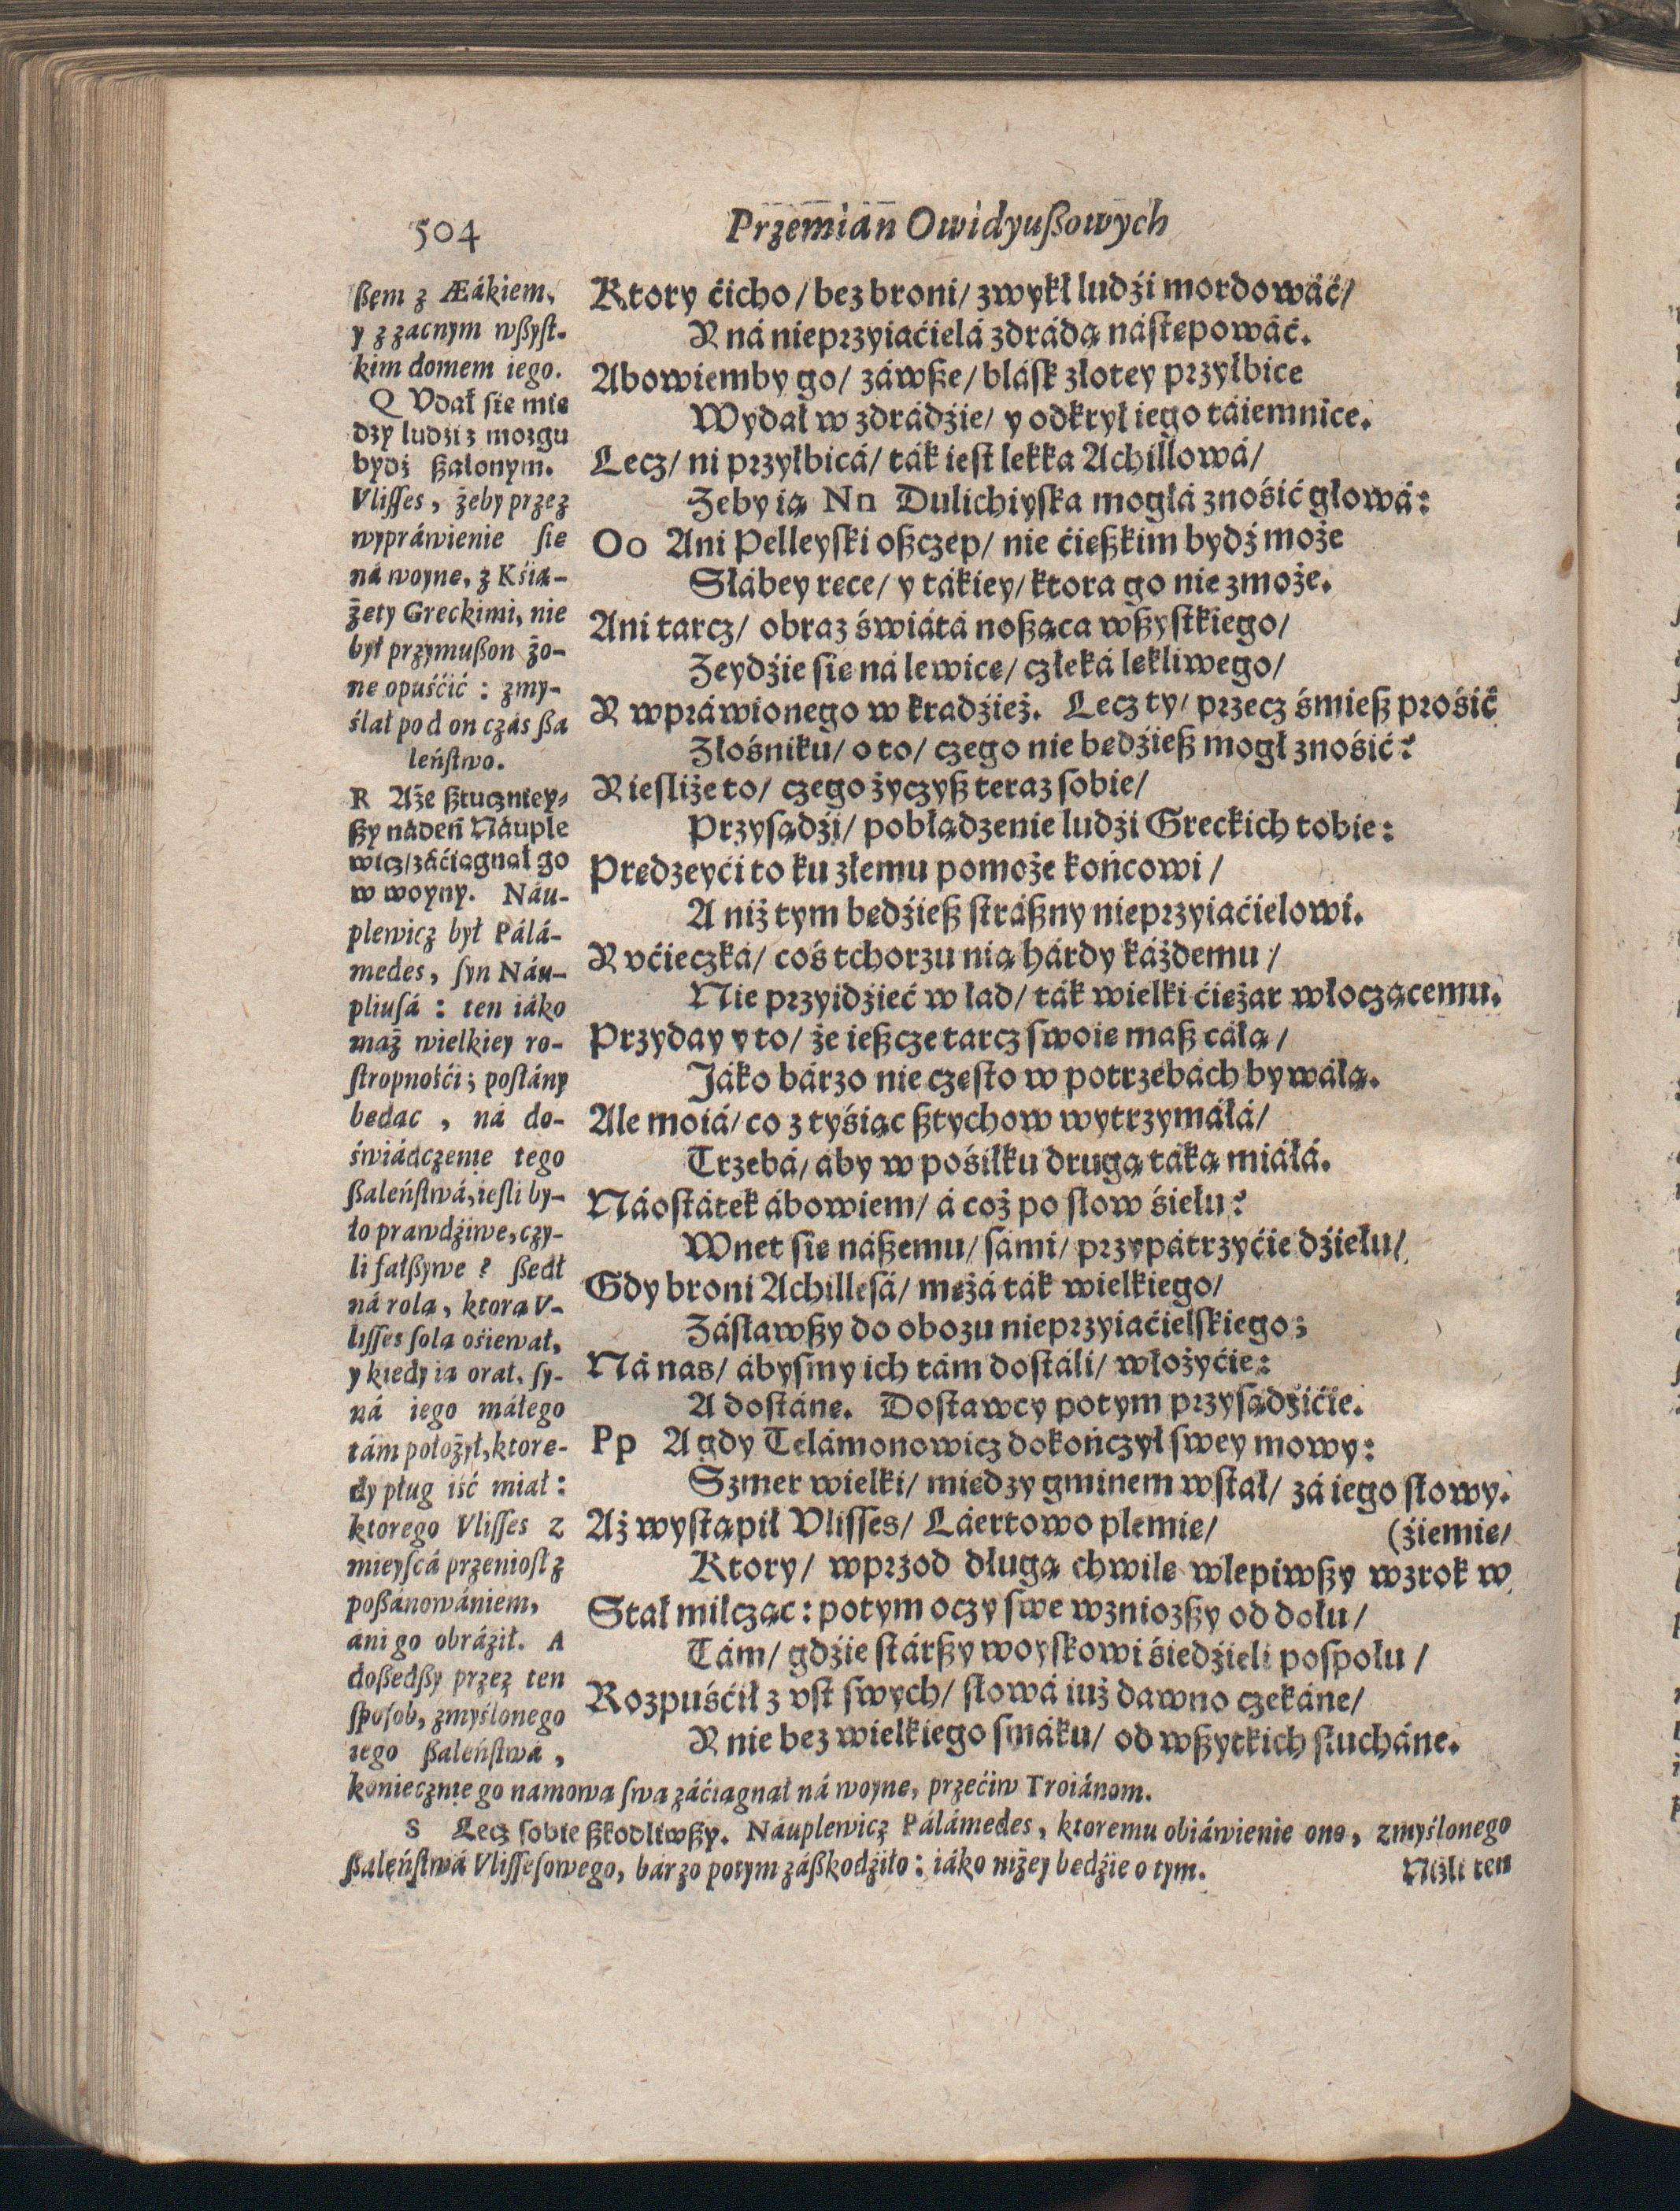 504
Przemian Owidyußowych
ßem z Æákiem,
y z zacnym wßyſt-
kim domem iego.
Q Vdał ſie mie
dzy ludźi z mozgu
bydź ßalonym.
Vliſſes, żeby przez
wypráwienie ſie
ná woyne, z Kśią-
żety Greckimi, nie
był przymußon żo-
ne opuśćić : zmy-
ślał pod on czás ßa
leńſtwo.
R Aże ßtuczniey-
ßy nádeń Náuple
wicz/záćiągnął go
w woyny. Náu-
plewicz był Pálá-
medes, ſyn Náu-
pliuſá : ten iáko
mąż wielkiey ro-
ſtropnośći; poſłány
bedąc , ná do-
świádczenie tego
ßaleńſtwá, ieſli by-
ło prawdźiwe, czy-
li fałßywe ? ßedł
ná rolą, ktorą V-
liſſes ſolą ośiewał,
y kiedy ią orał, ſy-
ná iego máłego
tám położył, ktore-
dy pług iść miał :
ktorego Vliſſes z
mieyſcá przenioſł z
poßánowániem,
áni go obráźił. A
doßedßy przez ten
ſpoſob, zmyślonego
iego ßaleńſtwá ,
koniecznie go namową ſwą záćiągnął ná woyne, przećiw Troiánom.
S Lecz ſobie ßkodliwßy. Náuplewicz Pálámedes, ktoremu obiáwienie ono, zmyślonego
ßaleńſtwá Vliſſeſowego, bárzo potym záßkodźiło : iáko niżey bedźie o tym.
Ktory ćicho/ bez broni/ zwykł ludźi mordowáć/
Y ná nieprzyiaćielá zdrádą náſtepowáć.
Abowiemby go/ záwße/ bláſk złotey przyłbice
Wydał w zdrádźie/ y odkrył iego táiemnice.
Lecz/ ni przyłbicá/ ták ieſt lekka Achillowá/
Zeby ią Nn Dulichiyſka mogłá znośić głowá:
Oo Ani Pelleyſki oßczep/ nie ćießkim bydź może
Słábey rece/ y tákiey/ ktora go nie zmoże.
Ani tarcz/ obraz świátá noßąca wßyſtkiego/
Zeydźie ſie ná lewice/ człeká lekliwego/
Y wpráwionego w kradźież. Lecz ty/ przecz śmieß prośić
Złośniku/ o to/ czego nie bedźieß mogł znośić?
Y ieſliże to/ czego życzyß teraz ſobie/
Przyſądźi/ pobłądzenie ludźi Greckich tobie:
Predzeyći to ku złemu pomoże końcowi /
A niż tym bedźieß ſtráßny nieprzyiaćielowi.
Y vćieczká/ coś tchorzu nią hárdy káżdemu /
Nie przyidźieć w ład/ ták wielki ćieżar włoczącemu.
Przyday y to/ że ießcze tarcz ſwoie maß cáłą /
Jáko bárzo nie czeſto w potrzebách bywáłą.
Ale moiá/ co z tyśiąc ßtychow wytrzymáłá/
Trzebá/ áby w pośiłku drugą táką miáłá.
Náoſtátek ábowiem/ á coż po ſłow śiełu?
Wnet ſie náßemu/ ſámi/ przypátrzyćie dźiełu/
Gdy broni Achilleſá/ mężá ták wielkiego/
Záſławßy do obozu nieprzyiaćielſkiego;
Ná nas/ ábyſmy ich tám doſtáli/ włożyćie:
A doſtáne. Doſtawcy potym przyſądźićie.
Pp A gdy Telámonowicz dokończył ſwey mowy:
Szmer wielki/ miedzy gminem wſtał/ zá iego ſłowy.
Aż wyſtąpił Vliſſes/ Láertowo plemie/
(źiemie/
Ktory/ wprzod długą chwile wlepiwßy wzrok w
Stał milcząc: potym oczy ſwe wznioſßy od dołu/
Tám/ gdźie ſtárßy woyſkowi śiedźieli poſpołu /
Rozpuśćił z vſt ſwych/ ſłowá iuż dawno czekáne/
Y nie bez wielkiego ſmáku/ od wßytkich ſłucháne.
Niżli ten